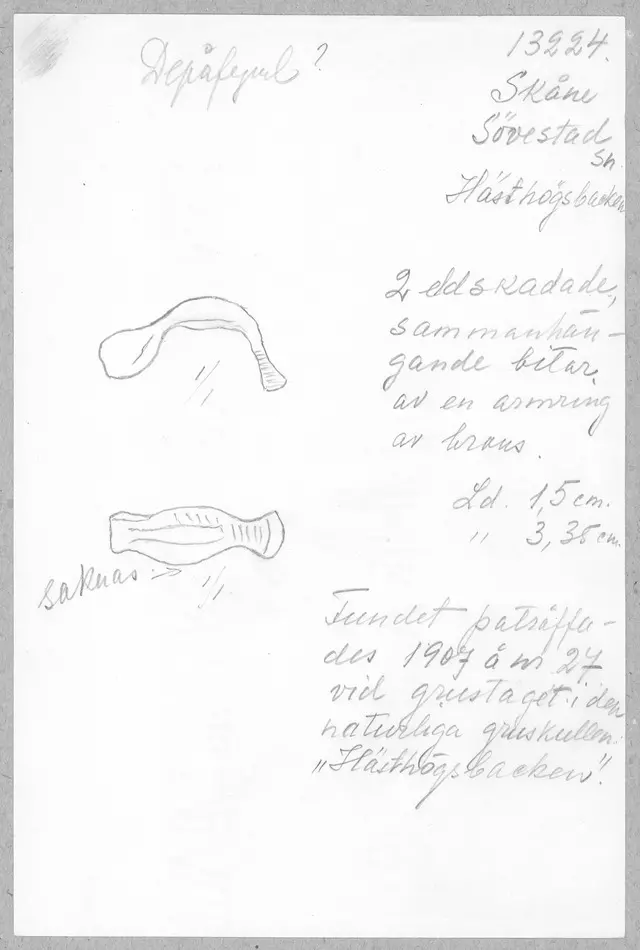 Depåfynd?
13224.
Skåne
Sövestad
sn.
Hästhögsbacken
2 eldskadade,
sammanhän-
gande bitar
av en armring
av brons.
1/1
Ld. 1,5 cm.
" 3,35 cm.
saknas
1/1
Fundet påträffa-
des 1907 å nr 27
vid grustaget i den
naturliga gruskullen
"Hästhögsbacken".